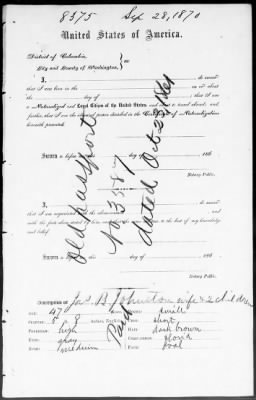 8375 Sep 28, 1870
United States of America.
District of Columbia,
City and County of Washington, ss
I, do swear
that I was born in the on or about
the day of that I am
a Naturalized and Loyal Citizen of the United States, and about to travel abroad; and
further, that I am the identical person described in the Certificate of Naturalization
herewith presented.
Sworn before me this day of 186
Notary Public.
Old passport
No 3587
dated Oct 23 1861
I, do swear
that I am acquainted with the above
and with the facts above stated by and the same are true to the best of my knowledge
and belief.
Sworn before me this day of 186
Notary Public.
Description of Jas. B. Johnston wife & 2 children
Age: 47 Mouth: small
Stature: 5 8 Chin: short
Forehead: high Hair: dark brown
Eyes: gray Complexion: florid
Nose: medium Face: oval
Paid